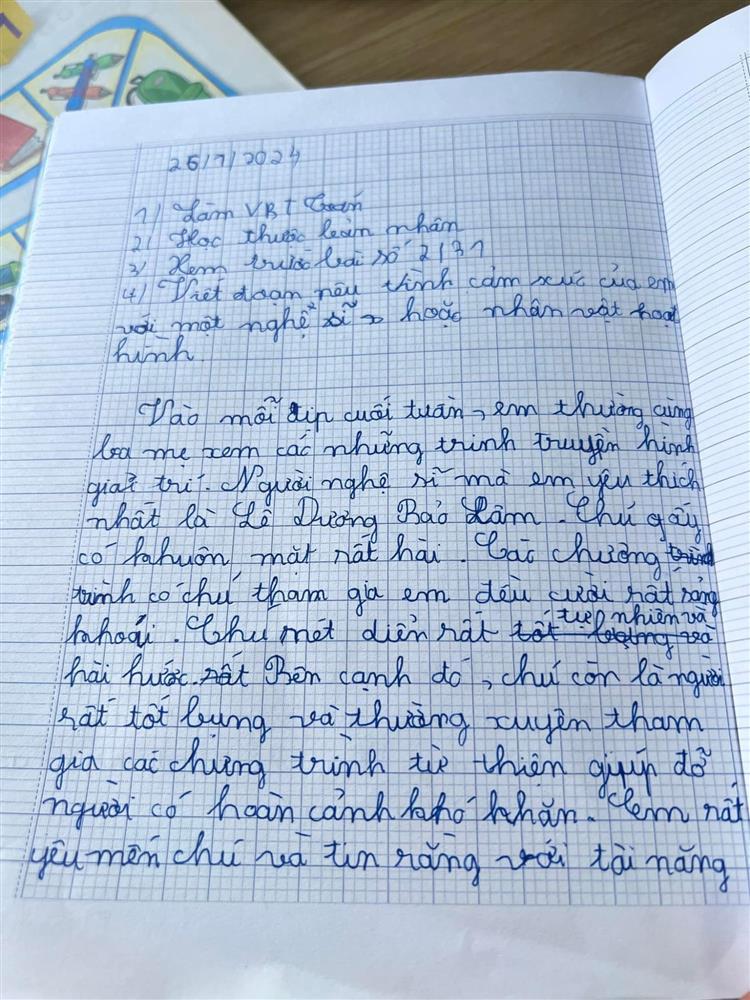 26/7/2024
1) Làm VBT Toán
2) Học thuộc lòng nhân
3) Xem trước bài số 2|31
4) Viết đoạn nêu tình cảm xúc của em
với một nghệ sĩ hoặc nhân vật hoạt
hình.
Vào mỗi dịp cuối tuần, em thường cùng
ba mẹ xem các những trình truyền hình
giải trí. Người nghệ sĩ mà em yêu thích
nhất là Lê Dương Bảo Lâm. Chú gây
có khuôn mặt rất hài. Các chương
trình có chú tham gia em đều cười rất sảng
khoái. Chú diễn rất tự nhiên và
hài hước. rất Bên cạnh đó, chú còn là người
rất tốt bụng và thường xuyên tham
gia các chưng trình từ thiện giyúp đỡ
người có hoàn cảnh khó khăn. Em rất
yêu mến chú và tin rằng với tài năng